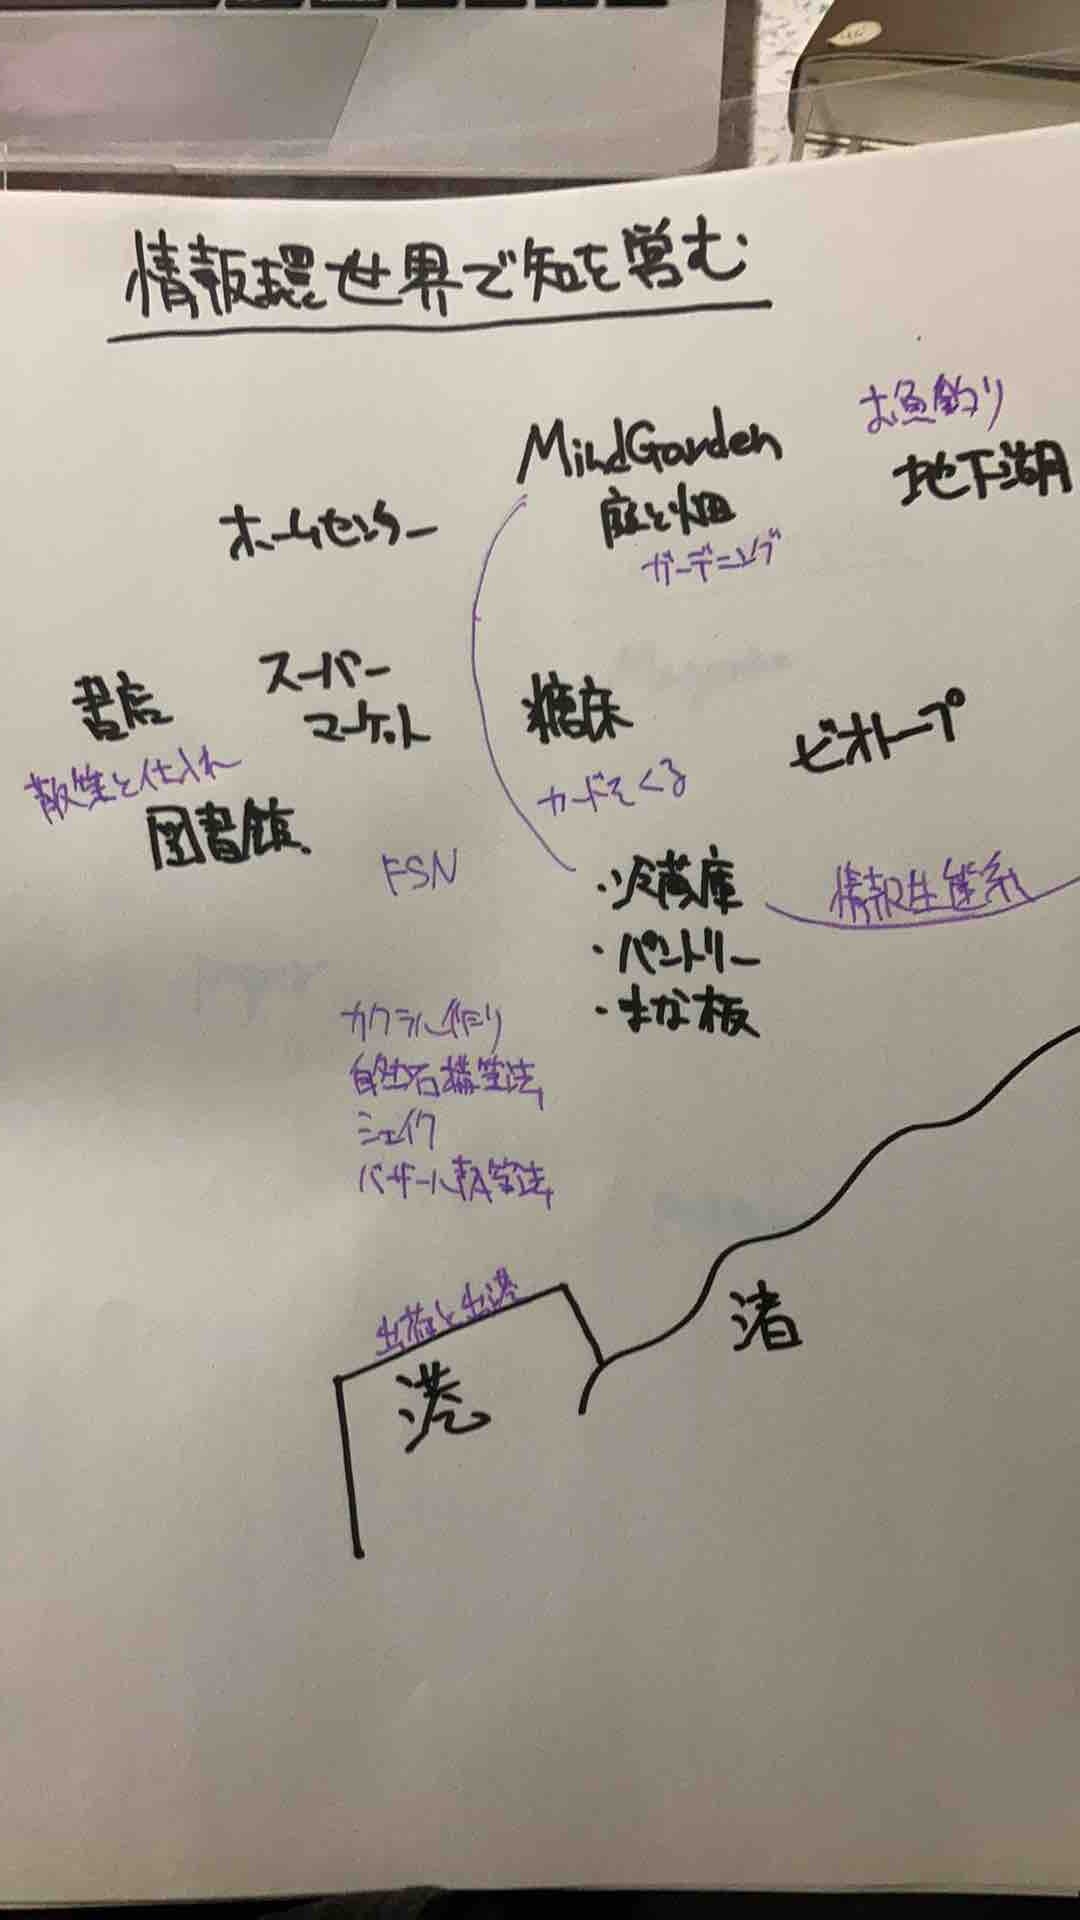 情報環世界で知を営む
お魚釣り
MindGarden
地下湖
庭と畑
ホームセンター
ガーデニング
スーパー
マーケット
書店
糠床
ビオトープ
散策と仕入れ
カードをくる
図書館
FSN
・冷蔵庫
情報生態系
・パントリー
・まな板
カクテル作り
自然石構築法
シェイク
バザール執筆法
出荷と出港
渚
港